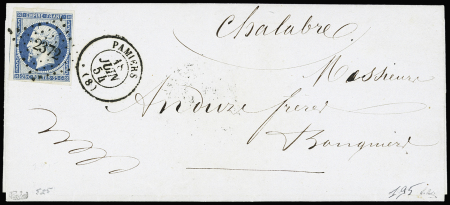 EMPIRE FRANC
237
PAMIERS
JUIN
54
(8)
Chalabre
Messieurs
frères
Banquiers
195